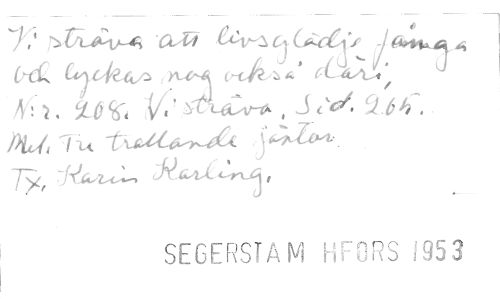 Vi sträva att livsglädje fånga
och lyckas nog också däri,
N:r. 208. Vi sträva. Sid. 265.
Mel. Tre trallande jäntor
Tx. Karin Karling.
SEGERSTAM HFORS 1953